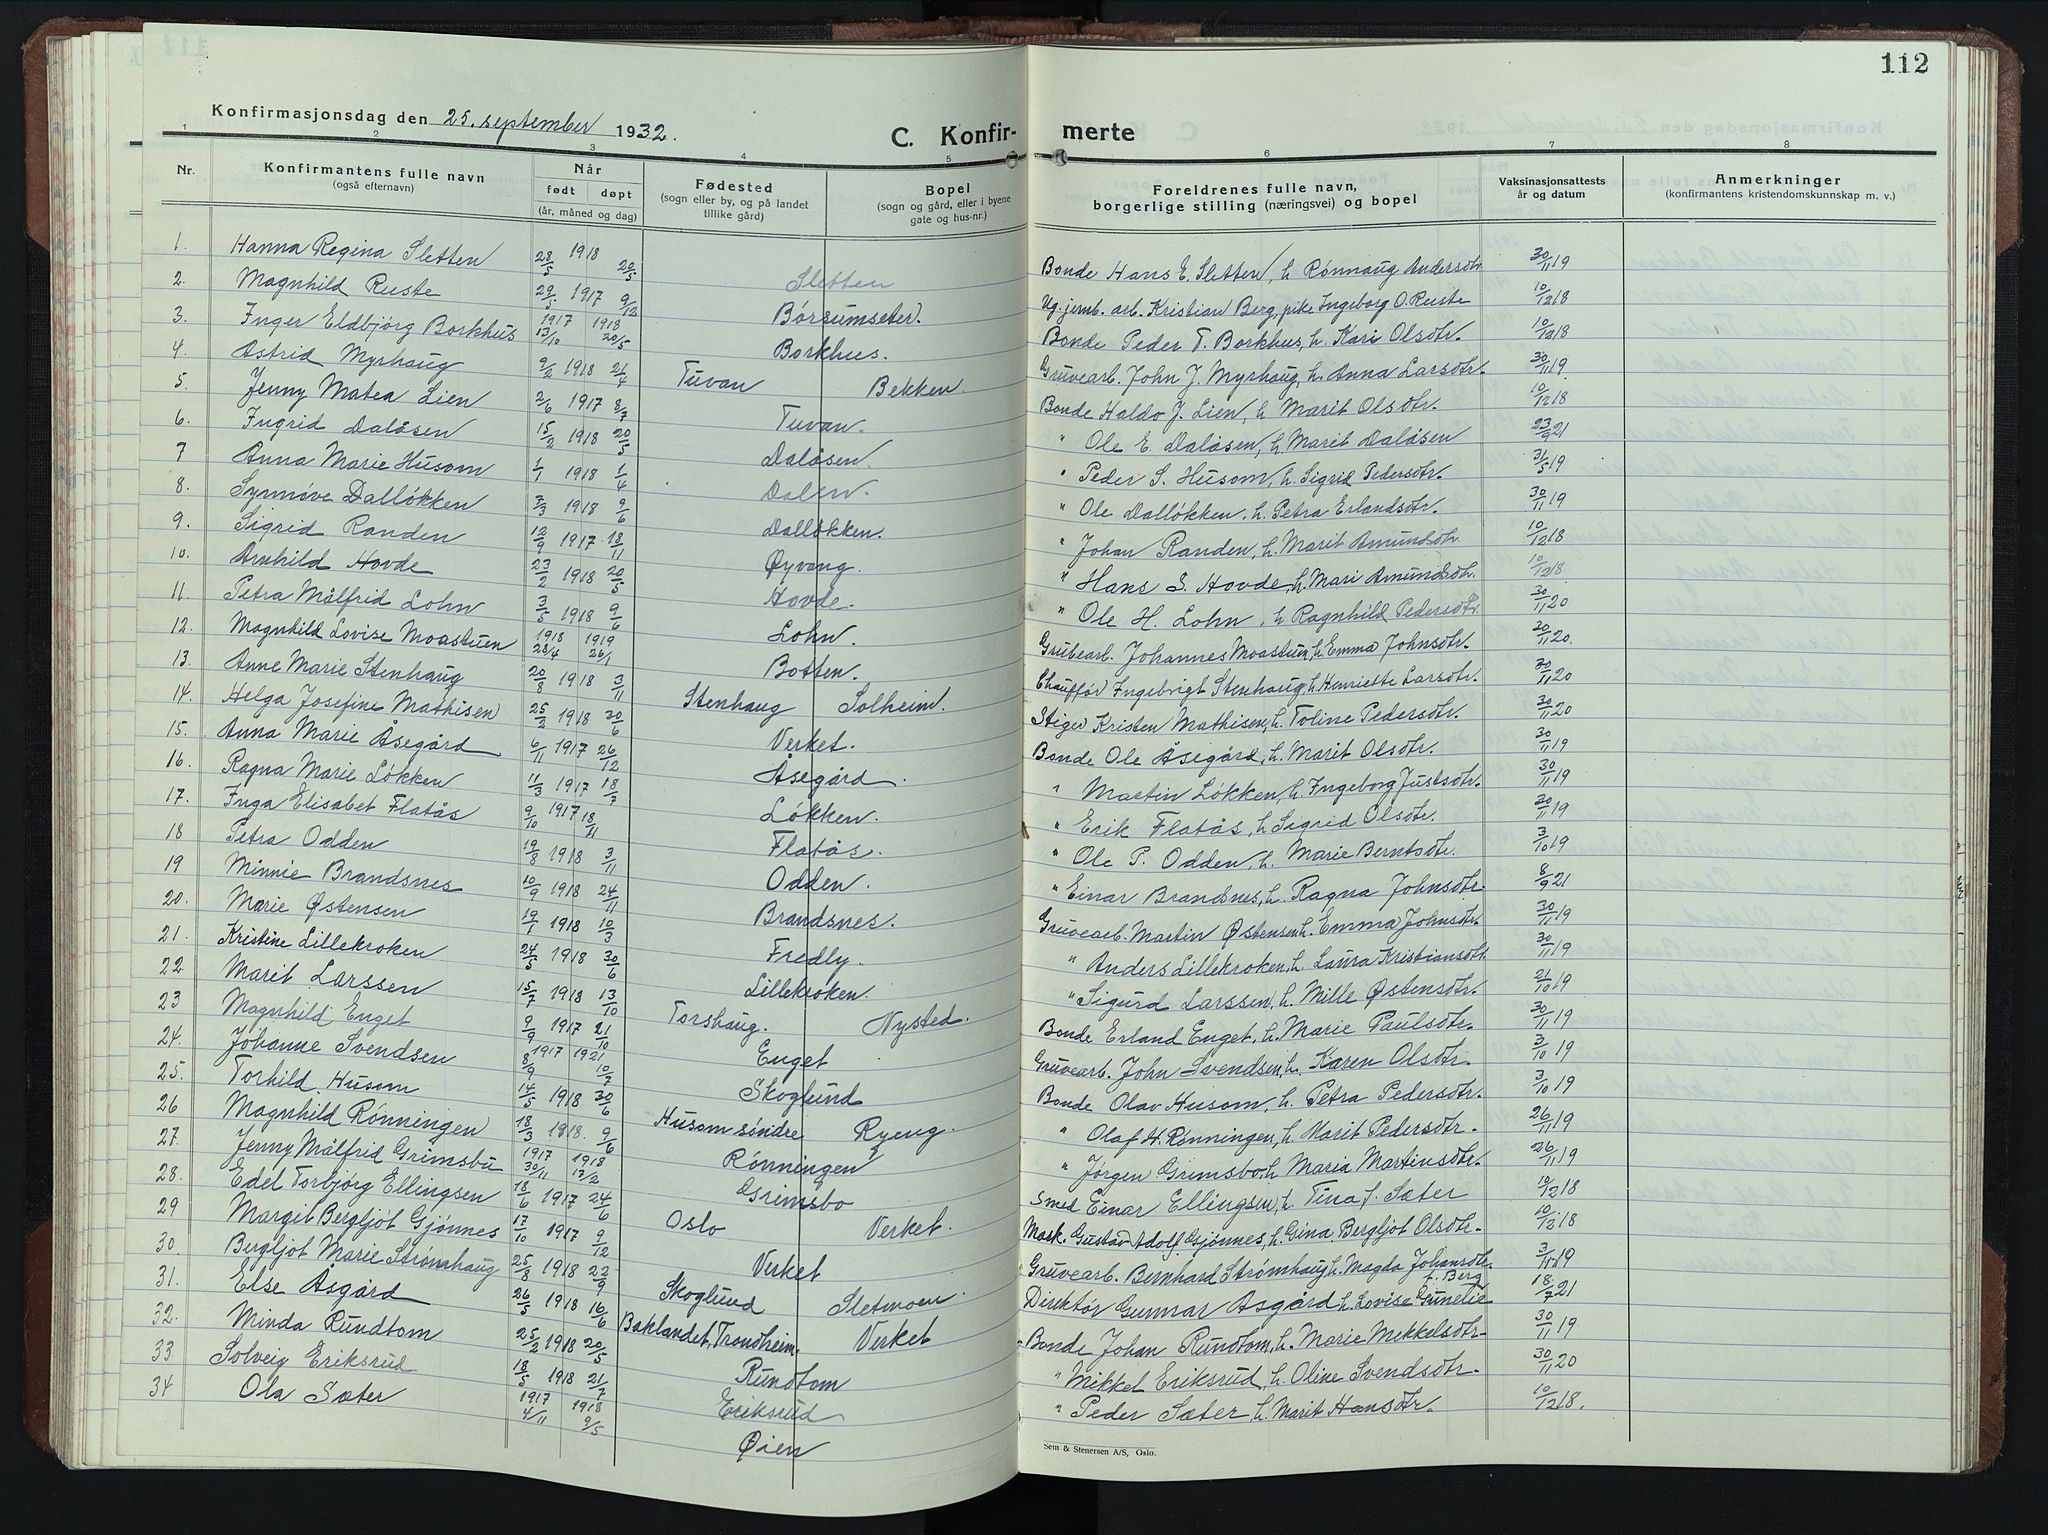 112
Konfirmasjonsdag den 25. september 1932.
C. Konfir- merte
1 2 3 4 5 6 7 8
Nr. Konfirmantens fulle navn (også efternavn) Når født døpt (år, måned og dag) Fødested (sogn eller by, og på landet tillike gård) Bopel (sogn og gård, eller i byene gate og hus-nr.) Foreldrenes fulle navn, borgerlige stilling (næringsvei) og bopel Vaksinasjonsattests år og datum Anmerkninger (konfirmantens kristendomskunnskap m. v.)
1. Hanna Regina Sletten 28/5 1918 20/5 Sletten Bonde Hans E. Sletten, h. Rønnaug Andersdtr. 30/11 19
2. Magnhild Ruste 29/5 1917 9/12 Børsumseter. Ug. jernb. arb. Kristian Berg, pike Ingeborg O. Ruste 10/12 18
3. Inger Eldbjørg Borkhus 1917 13/10 1918 20/5 Borkhus. Bonde Peder T. Borkhus, h. Kari Olsdtr. 10/12 18
4. Astrid Myrhaug 9/2 1918 21/4 Tuvan Bekken. Gruvearb. John J. Myrhaug, h. Anna Larsdtr. 30/11 19
5. Jenny Matea Lien 2/6 1917 8/7 Tuvan. Bonde Haldo J. Lien, h. Marit Olsdtr. 10/12 18
6. Ingrid Dalåsen 15/2 1918 20/5 Dalåsen. " Ole E. Dalåsen, h. Marit Dalåsen 23/9 21
7 Anna Marie Husom 1/1 1918 1/4 Dalen. " Peder S. Husom, h. Sigrid Pedersdtr. 31/5 19
8. Synnøve Dalløkken 7/3 1918 9/6 Dalløkken. " Ole Dalløkken, h. Petra Erlandsdtr. 30/11 19
9. Sigrid Randen 12/9 1917 18/11 Øyvang. " Johan Randen, h. Marit Amundsdtr. 10/12 18
10. Arnhild Hovde 23/2 1918 20/5 Hovde. " Hans S. Hovde, h. Mari Amundsdtr. 10/12 18
11. Petra Målfrid Lohn 3/5 1918 9/6 Lohn. " Ole H. Lohn, h. Ragnhild Pedersdtr. 30/11 20
12. Magnhild Lovise Moastuen 1918 28/4 1919 26/1 Botten. Grubearb. Johannes Moastuen, h. Emma Johnsdtr. 30/11 20.
13. Anne Marie Stenhaug 20/8 1918 3/11 Stenhaug Solheim. Chauffør Ingebrigt Stenhaug, h. Henriette Larsdtr. 30/11 20
14. Helga Josefine Mathisen 25/2 1918 30/6 Verket. Stiger Kristen Mathisen, h. Toline Pedersdtr. 30/11 20
15. Anna Marie Åsegård 6/11 1917 26/12 Åsegård. Bonde Ole Åsegård, h. Marit Olsdtr. 30/11 19
16. Ragna Marie Løkken 11/3 1917 18/7 Løkken. " Martin Løkken, h. Ingeborg Justsdtr. 30/11 19
17. Inga Elisabet Flatås 9/10 1917 18/11 Flatås. " Erik Flatås, h. Sigrid Olsdtr. 30/11 19
18 Petra Odden 19/8 1918 3/11 Odden. " Ole P. Odden, h. Marie Berntsdtr. 3/10 19
19 Minnie Brandsnes 10/9 1918 24/11 Brandsnes. " Einar Brandsnes, h. Ragna Johnsdtr. 8/9 21
20. Marie Østensen 19/1 1918 10/3 Fredly. Gruvearb. Martin Østensen, h. Emma Johnsdtr. 30/11 19
21. Kristine Lillekroken 24/5 1918 30/6 Lillekroken. " Anders Lillekroken, h. Laura Kristiansdtr. 30/11 19
22 Marit Larssen 15/7 1918 13/10 Torshaug. Nysted. " Sigurd Larssen, h. Mille Østensdtr. 21/10 19
23 Magnhild Enget 9/9 1917 21/10 Enget Bonde Erland Enget, h. Marie Paulsdtr. 30/11 19
24. Johanne Svendsen 8/9 1917 1921 10/7 Skoglund Gruvearb. John Svendsen, h. Karen Olsdtr. 3/10 19
25. Torhild Husom 14/5 1918 30/6 Husom søndre Ryeng. Bonde Olav Husom, h. Petra Pedersdtr. 3/10 19
26 Magnhild Rønningen 18/3 1918. 9/6 Rønningen " Olaf H. Rønningen, h. Marit Pedersdtr. 26/11 19
27. Jenny Målfrid Grimsbu 1917 30/11 1918 17/2 Grimsbo " Jørgen Grimsbo, h. Maria Martinsdtr. 26/11 19
28. Edel Torbjørg Ellingsen 18/6 1917 24/6 Oslo Verket. Smed Einar Ellingsen, h. Tina f. Sæter 10/12 18
29 Margit Bergljot Gjønnes 17/10 1917 9/12 Verket Mask. Gustav Adolf Gjønnes, h. Gina Bergljot Olsdtr. 10/12 18
30. Bergljot Marie Strømhaug 25/8 1918 22/9 Skoglund Sletmoen. Gruvearb. Bernhard Strømhaug, h. Magda Johansdtr. 3/11 19
31. Else Åsgård 26/5 1918 16/6 Baklandet, Trondheim. Verket Direktør Gunnar Åsgård, h. Lovise Gunelie f. Berg 18/7 21
32. Minda Rundtom 25/2 1918 20/5 Rundtom Bonde Johan Rundtom, h. Marie Mikkelsdtr. 30/11 19
33 Solveig Eriksrud 18/5 1918 21/7 Eriksrud " Mikkel Eriksrud, h. Oline Svendsdtr. 30/11 20
34 Ola Sæter 1917 4/11 1918 9/5 Øien " Peder Sæter h. Marit Hansdtr. 10/12 18.
Sem & Stenersen A/S, Oslo.